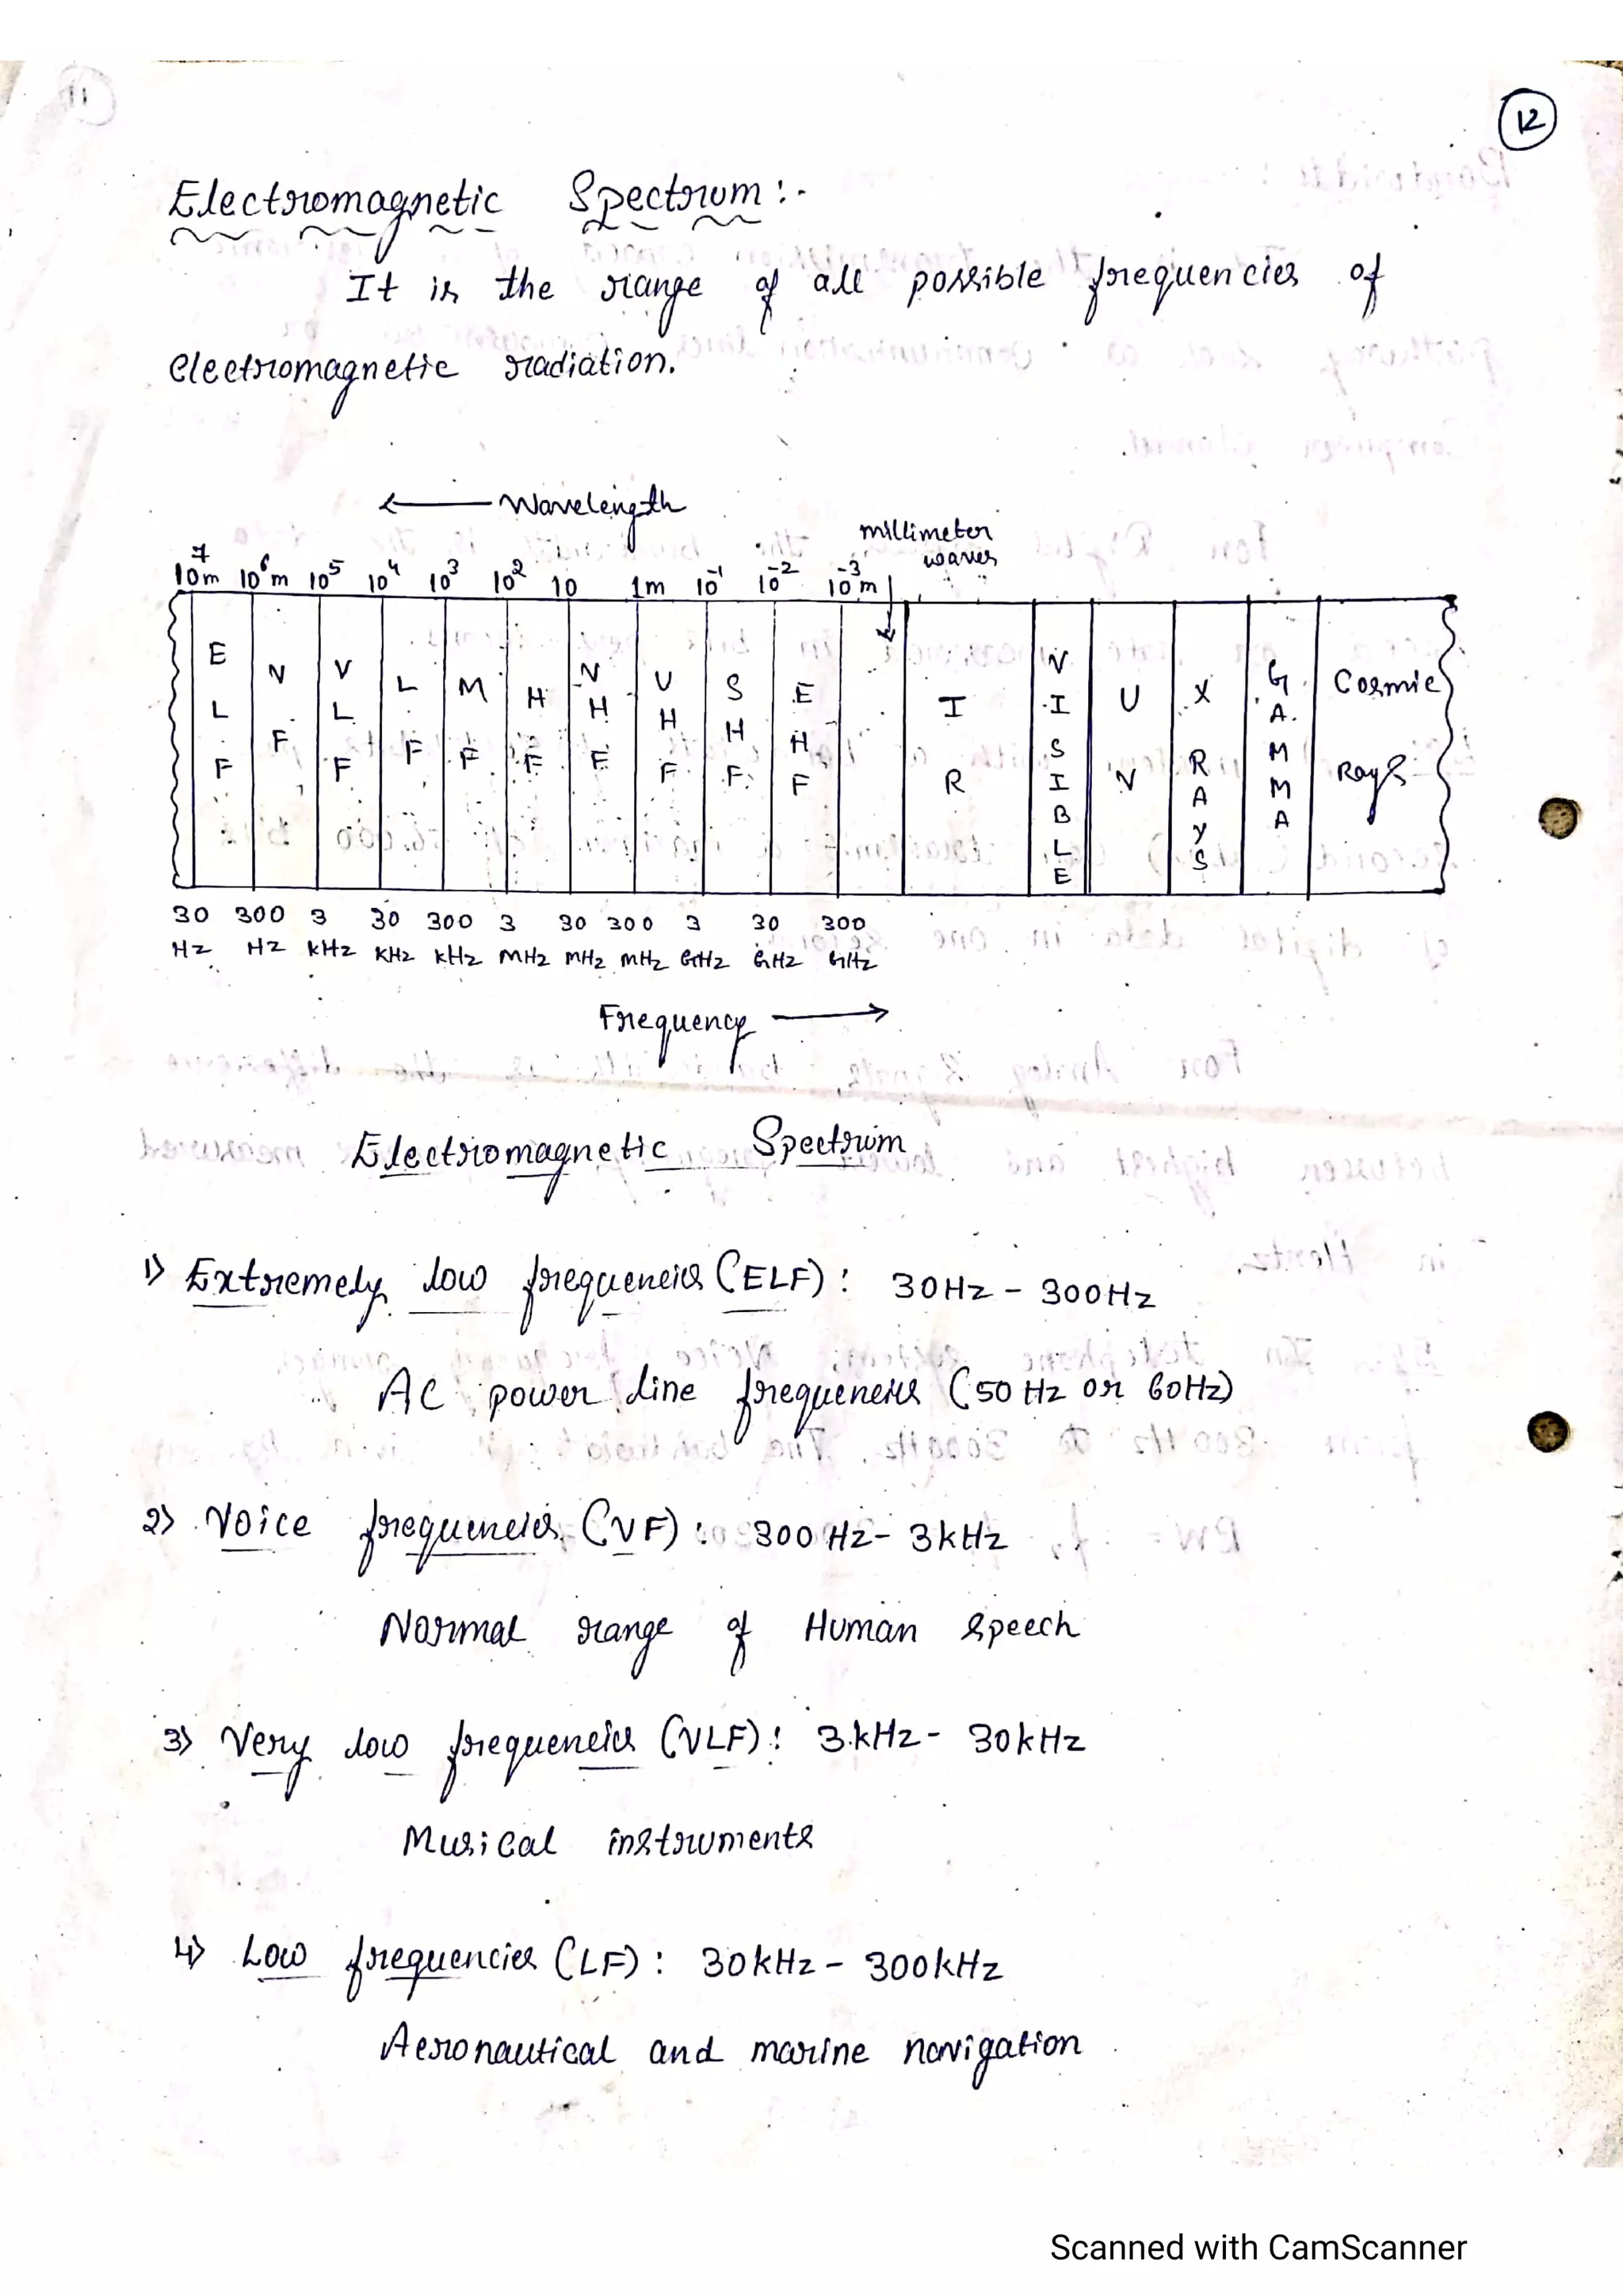 12
Electromagnetic Spectrum :-
It is the range of all possible frequencies of
electromagnetic radiation.
← Wavelength
millimeter
waves
10⁷m 10⁶m 10⁵ 10⁴ 10³ 10² 10 1m 10⁻¹ 10⁻² 10⁻³m
ELF VF VLF LF MF HF VHF UHF SHF EHF IR VISIBLE UV X RAYS GAMMA Cosmic Rays
30 300 3 30 300 3 30 300 3 30 300
Hz Hz kHz KHz kHz MHz MHz MHz GHz GHz GHz
Frequency →
Electromagnetic Spectrum
1) Extremely low frequencies (ELF) : 30Hz - 300Hz
AC power line frequencies (50 Hz or 60Hz)
2) Voice frequencies (VF) : 300 Hz - 3kHz
Normal range of Human speech
3) Very low frequencies (VLF) : 3kHz - 30kHz
Musical instruments
4) Low frequencies (LF) : 30kHz - 300kHz
Aeronautical and marine navigation
Scanned with CamScanner